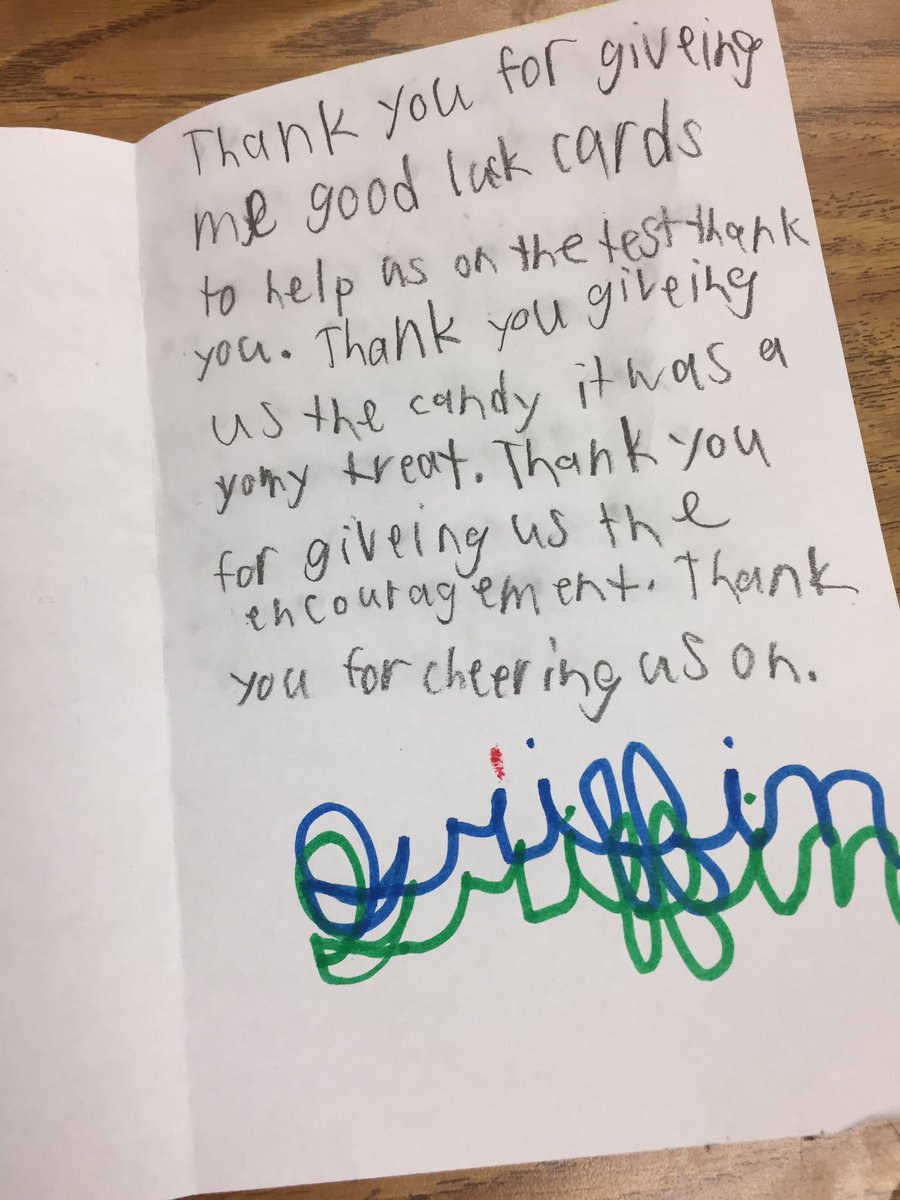 Thank you for giveing
me good luck cards
to help us on the test thank
you. Thank you giveing
us the candy it was a
yomy treat. Thank you
for giveing us the
encouragement. Thank
you for cheering us on.
Griffin
Griffin